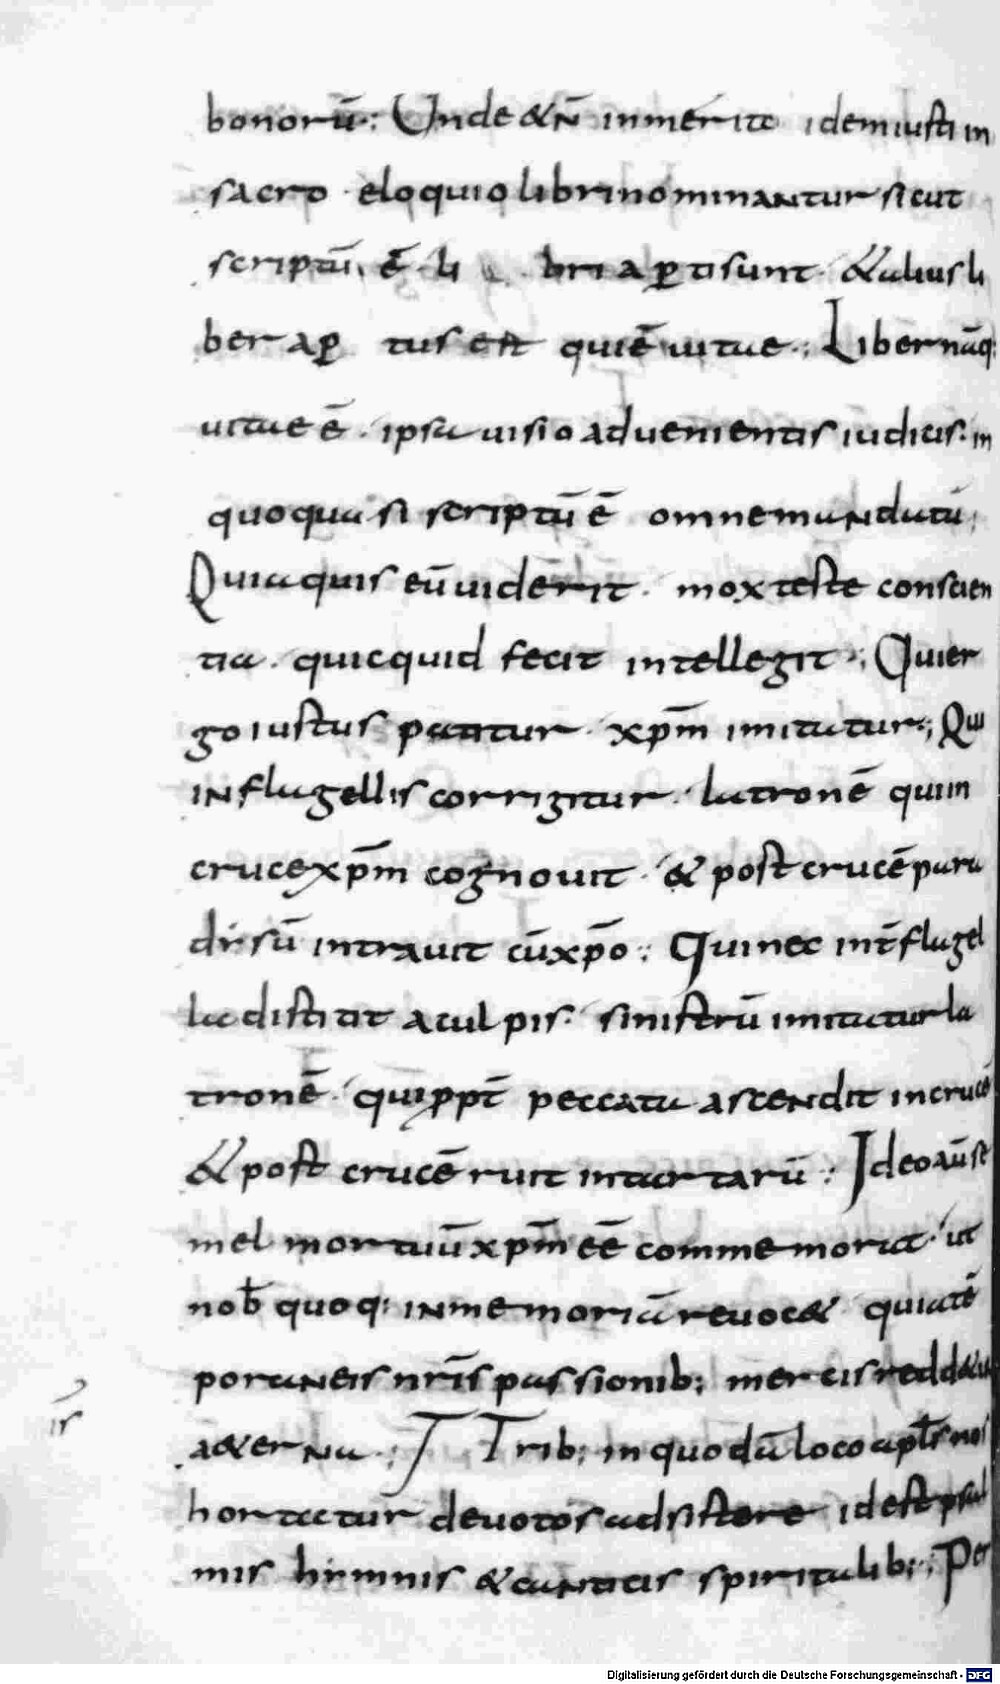 bonorū; Unde & n̄ inmerito idem iusti in
sacro eloquio libri nominantur sicut
scriptū ē· li bri aꝑti sunt· & alius li
ber aꝑ tus est qui ē uitae·; Liber nāq;
uitae ē· ipsa uisio aduenientis iudicis· in
quo quasi scriptū ē omne mandatū;
Quia quis eū uiderit· mox teste conscien
tia· quicquid fecit intellegit·; Qui er
go iustus patitur· xp̄m imitatur·; Qui
in flagellis corrigitur· latronē qui in
cruce xp̄m cognouit· & post crucē para
disū intrauit cū xp̄o·; Qui nec int̄ flagel
la distitit a culpis· sinistrū imitatur la
tronē· qui ꝓpt̄ peccata ascendit in crucē
& post crucē ruit in tartarū·; Ideo aū se
mel mortuū xp̄m eē commemorat· ut
nob̄ quoq; in memoriā reuoc& quia tē
poraneis nr̄is passionib; mercis redd&ur
a&erna·; Trib; in quodā loco apl̄s nos
hortatur deuotos adsistere id est psal
mis himnis & canticis spiritalib;·; Per
ir
Digitalisierung gefördert durch die Deutsche Forschungsgemeinschaft - DFG